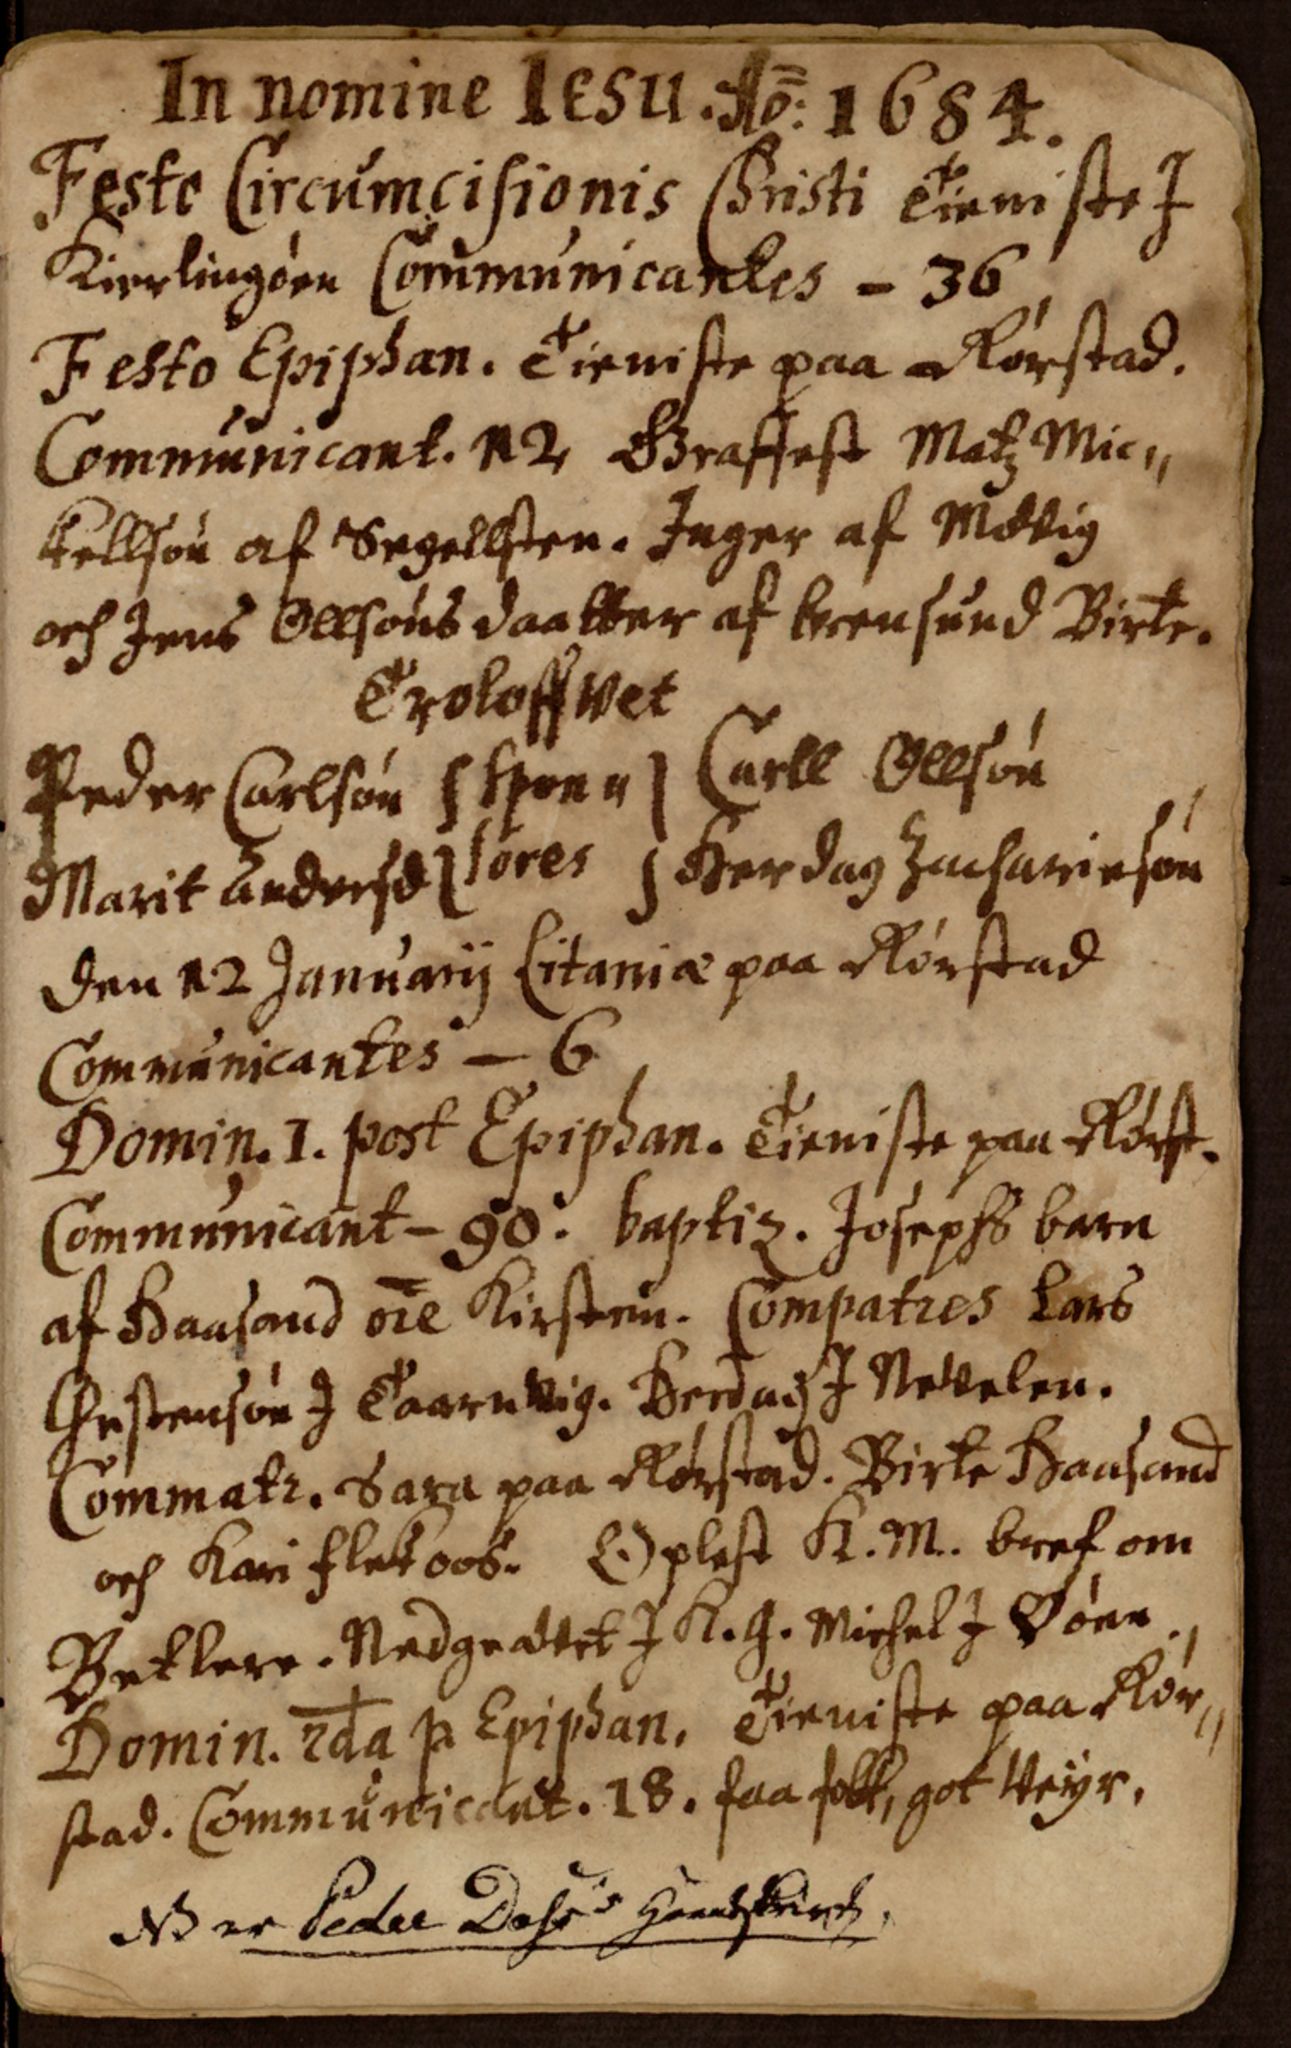 In nomine IESU. Aō: 1684.
Festo Circumcisionis Christi Tieniste I
Kierlingöen Communicantes - 36
Festo Epiphan. Tieniste paa Rørstad.
Communicant. 12 Graffest Matz Mic„
kellsøn af Segellsten. Inger af Mørvig
och Jens Ollsøns daatter af brensund Birte.
Troloffwet
Peder Carlsøn { spon„ } Carll Ollsøn
Marit Andersd { sores } Herdag Zachariesøn
den 12 Januarij Litaniæ paa Rørstad
Communicantes - 6
Domin. 1. post Epiphan. Tieniste paa Rørst.
Communicant - 90. baptiz. Josephs barn
af Haasand nōīe Kirsten. Compatres Lars
Chrestensøn I Taarnvig. Herdag I Nevelen.
Commatr. Sara paa Rørstad. Birte Haasand
och Kari flekoos. Oplest K. M. bref om
Betlere. Nedgradet I K. G. Michel I Vøen.
Domin. 2da p Epiphan. Tieniste paa Rør„
stad. Communicant. 18. faa folk, got Veyr.
NB er Peder Dass's Haandskrivt.